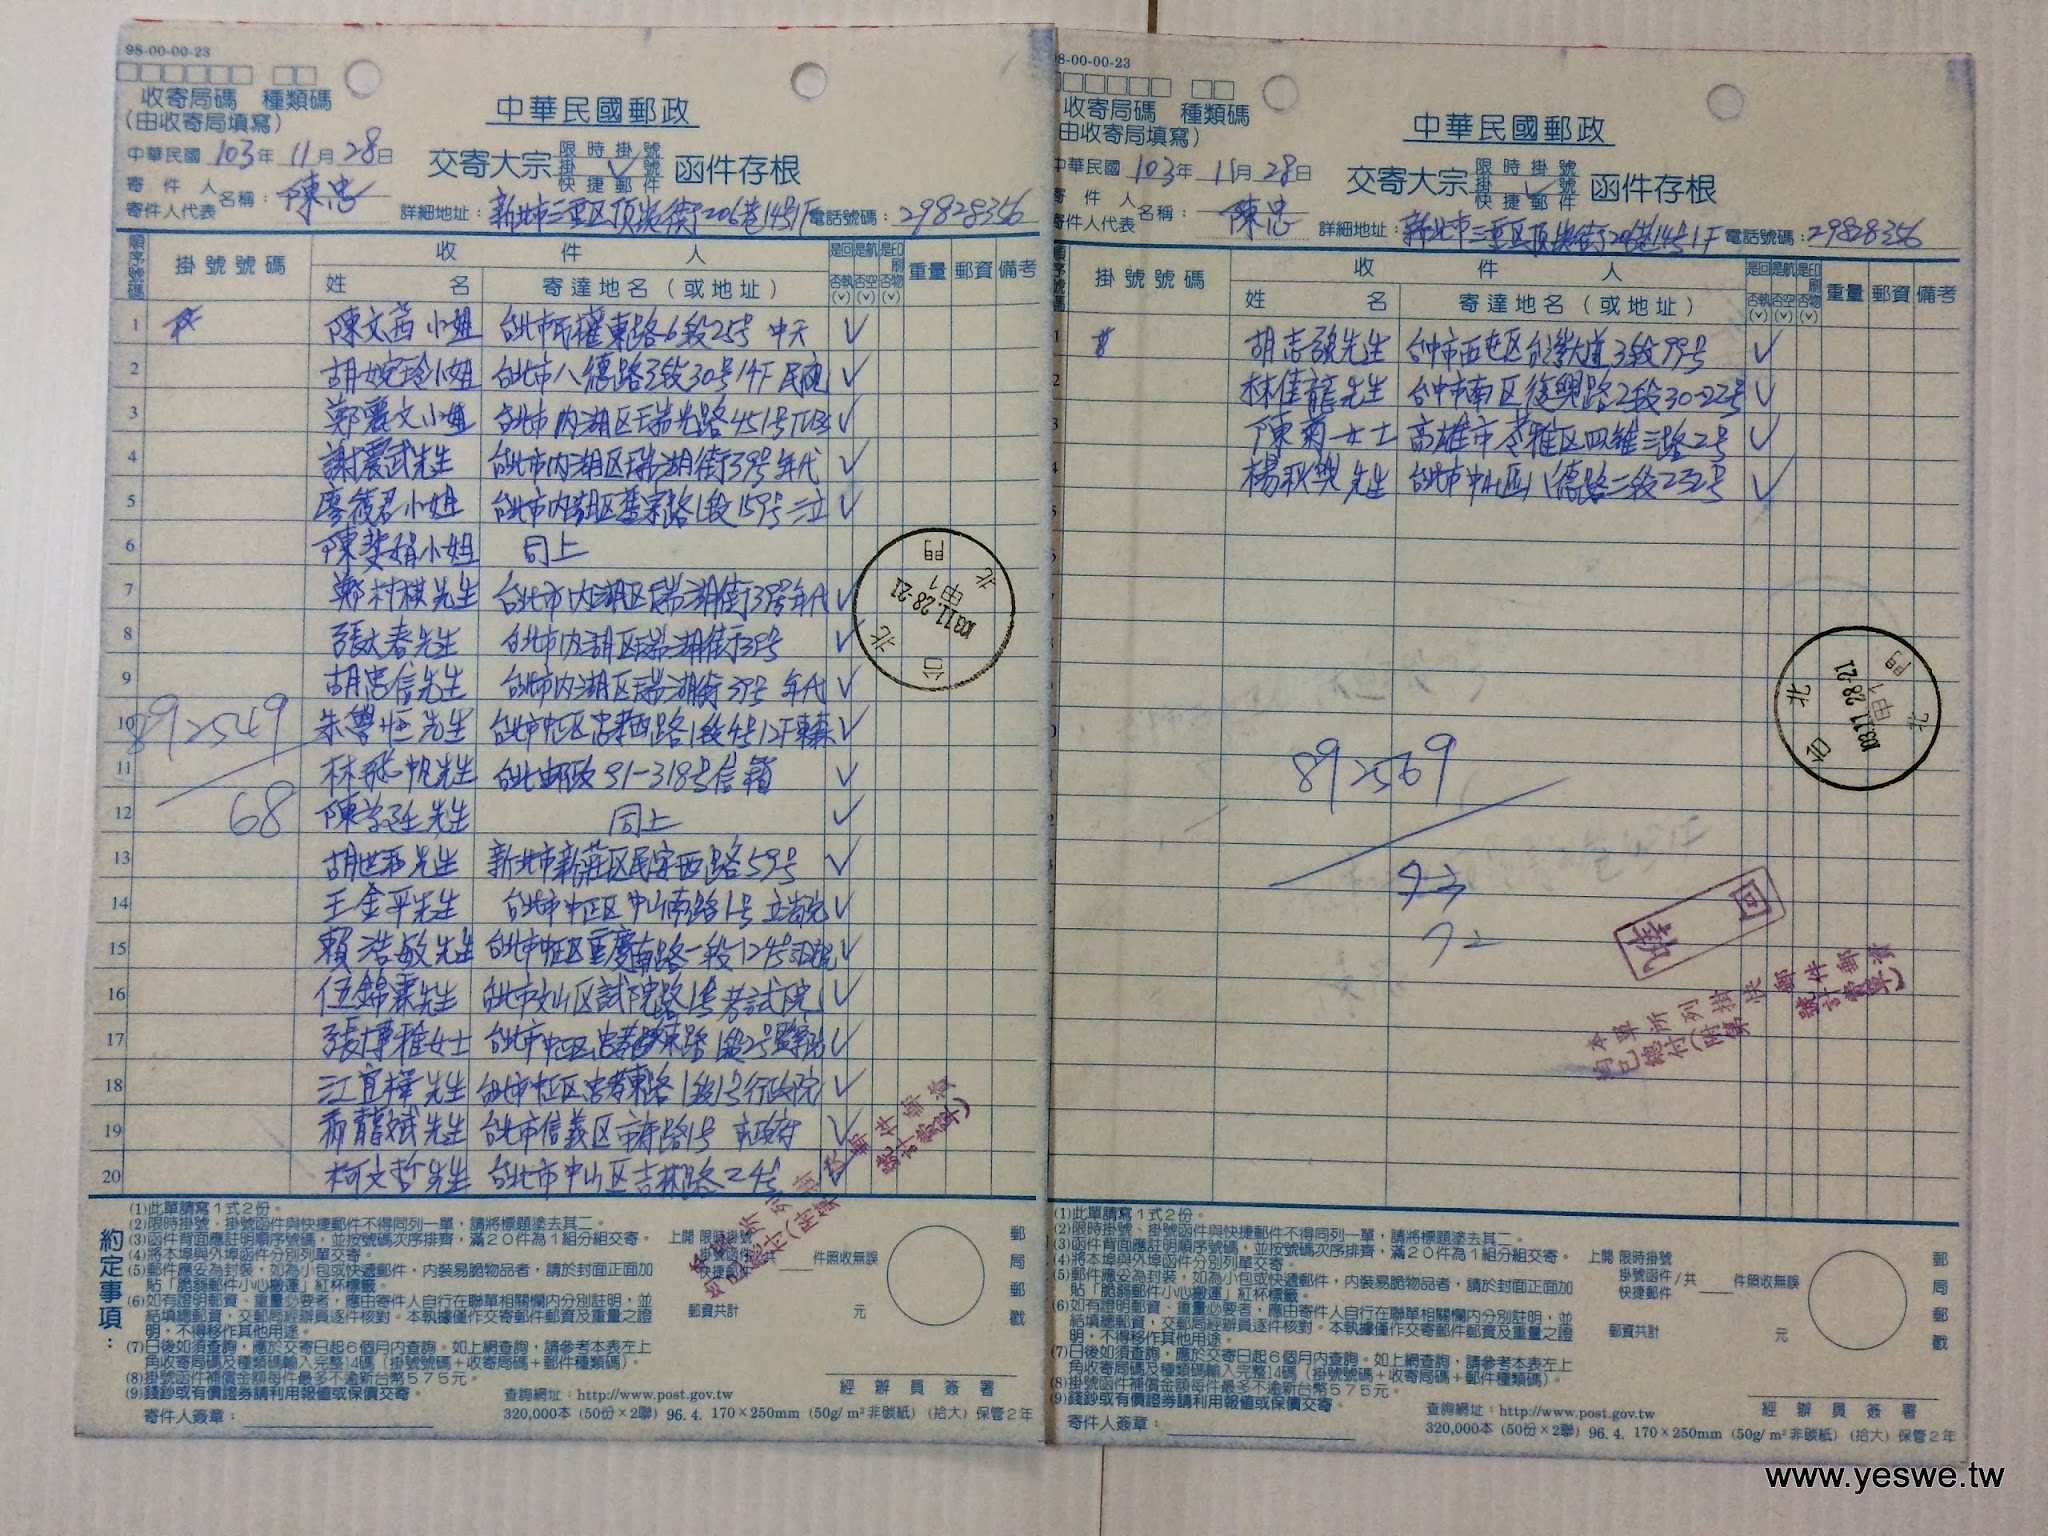 98-00-00-23
收寄局碼 種類碼
(由收寄局填寫)
中華民國郵政
中華民國 103年 11月 28日
交寄大宗 限時掛號 掛號 快捷郵件 函件存根
寄件人
寄件人代表 名稱: 陳忠
詳細地址: 新北市三重區 街206巷14号1F 電話號碼: 29828356
順序號碼 掛號號碼 收件人 是否回執(v) 是否航空(v) 是否印刷物(v) 重量 郵資 備考
姓名 寄達地名(或地址)
1 陳文茜小姐 台北市民權東路6段25号 中天 ✓
2 胡婉玲小姐 台北市八德路3段30号14F 民視 ✓
3 鄭麗文小姐 台北市內湖区瑞光路451号 ✓
4 謝震武先生 台北市內湖区瑞湖街39号年代 ✓
5 廖筱君小姐 台北市內湖区舊宗路1段159号三立 ✓
6 陳斐娟小姐 同上
7 鄭村棋先生 台北市內湖区瑞湖街39号年代 ✓
8 張大春先生 台北市內湖区瑞湖街39号 ✓
9 胡忠信先生 台北市內湖区瑞湖街39号 年代 ✓
10 朱學恒先生 台北市中正区忠孝西路1段4号12F東森 ✓
11 林飛帆先生 台北郵政91-318号信箱 ✓
12 陳為廷先生 同上 ✓
13 胡世和先生 新北市新莊区民安西路59号 ✓
14 王金平先生 台北市中正区中山南路1号 立法院 ✓
15 賴浩敏先生 台北市中正区重慶南路一段124号司法院 ✓
16 伍錦霖先生 台北市文山区試院路1号考試院 ✓
17 張博雅女士 台北市中正区忠孝東路1段2号監察院 ✓
18 江宜樺先生 台北市中正区忠孝東路1段1号行政院 ✓
19 郝龍斌先生 台北市信義区市府路1号 市政府 ✓
20 柯文哲先生 台北市中山区吉林路24号 ✓
892549
68
台北北門
103.11.28-21
甲1
約定事項:
(1)此單請寫1式2份。
(2)限時掛號、掛號函件與快捷郵件不得同列一單,請將標題塗去其二。
(3)函件背面應註明順序號碼,並按號碼次序排齊,滿20件為1組分組交寄。
(4)將本埠與外埠函件分別列單交寄。
(5)郵件應妥為封裝,如為小包或快遞郵件,內裝易脆物品者,請於封面正面加
貼「脆弱郵件小心搬運」紅杯標籤。
(6)如有證明郵資、重量必要者,應由寄件人自行在聯單相關欄內分別註明,並
結填總郵資,交郵局經辦員逐件核對。本執據僅作交寄郵件郵資及重量之證
明,不得移作其他用途。
(7)日後如須查詢,應於交寄日起6個月內查詢。如上網查詢,請參考本表左上
角收寄局碼及種類碼輸入完整14碼(掛號號碼+收寄局碼+郵件種類碼)。
(8)掛號函件補償金額每件最多不逾新台幣575元。
(9)錢鈔或有價證券請利用報值或保價交寄。
寄件人簽章:
上開 限時掛號 掛號函件 快捷郵件 件照收無誤
郵資共計 元
郵局郵戳
經辦員簽署
查詢網址:http://www.post.gov.tw
320,000本 (50份×2聯) 96. 4. 170×250mm (50g/m²非碳紙) (拾大) 保管2年
98-00-00-23
收寄局碼 種類碼
(由收寄局填寫)
中華民國郵政
中華民國 103年 11月 28日
交寄大宗 限時掛號 掛號 快捷郵件 函件存根
寄件人
寄件人代表 名稱: 陳忠
詳細地址: 新北市三重区 街206巷14号1F 電話號碼: 29828356
順序號碼 掛號號碼 收件人 是否回執(v) 是否航空(v) 是否印刷物(v) 重量 郵資 備考
姓名 寄達地名(或地址)
1 胡志強先生 台中市西屯区台灣大道3段99号 ✓
2 林佳龍先生 台中市南区復興路2段30-22号 ✓
3 陳菊女士 高雄市苓雅区四維三路2号 ✓
4 楊秋興先生 台北市中山區八德路二段232号 ✓
892569
73
72
台北北門
103.11.28-21
甲1
回執
本單所列掛快郵件郵資
均已總付(附算號計費單)
(1)此單請寫1式2份。
(2)限時掛號、掛號函件與快捷郵件不得同列一單,請將標題塗去其二。
(3)函件背面應註明順序號碼,並按號碼次序排齊,滿20件為1組分組交寄。
(4)將本埠與外埠函件分別列單交寄。
(5)郵件應妥為封裝,如為小包或快遞郵件,內裝易脆物品者,請於封面正面加
貼「脆弱郵件小心搬運」紅杯標籤。
(6)如有證明郵資、重量必要者,應由寄件人自行在聯單相關欄內分別註明,並
結填總郵資,交郵局經辦員逐件核對。本執據僅作交寄郵件郵資及重量之證
明,不得移作其他用途。
(7)日後如須查詢,應於交寄日起6個月內查詢。如上網查詢,請參考本表左上
角收寄局碼及種類碼輸入完整14碼(掛號號碼+收寄局碼+郵件種類碼)。
(8)掛號函件補償金額每件最多不逾新台幣575元。
(9)錢鈔或有價證券請利用報值或保價交寄。
寄件人簽章:
上開 限時掛號 掛號函件 快捷郵件 /共 件照收無誤
郵資共計 元
郵局郵戳
經辦員簽署
查詢網址:http://www.post.gov.tw
320,000本 (50份×2聯) 96. 4. 170×250mm (50g/m²非碳紙) (拾大) 保管2年
www.yeswe.tw